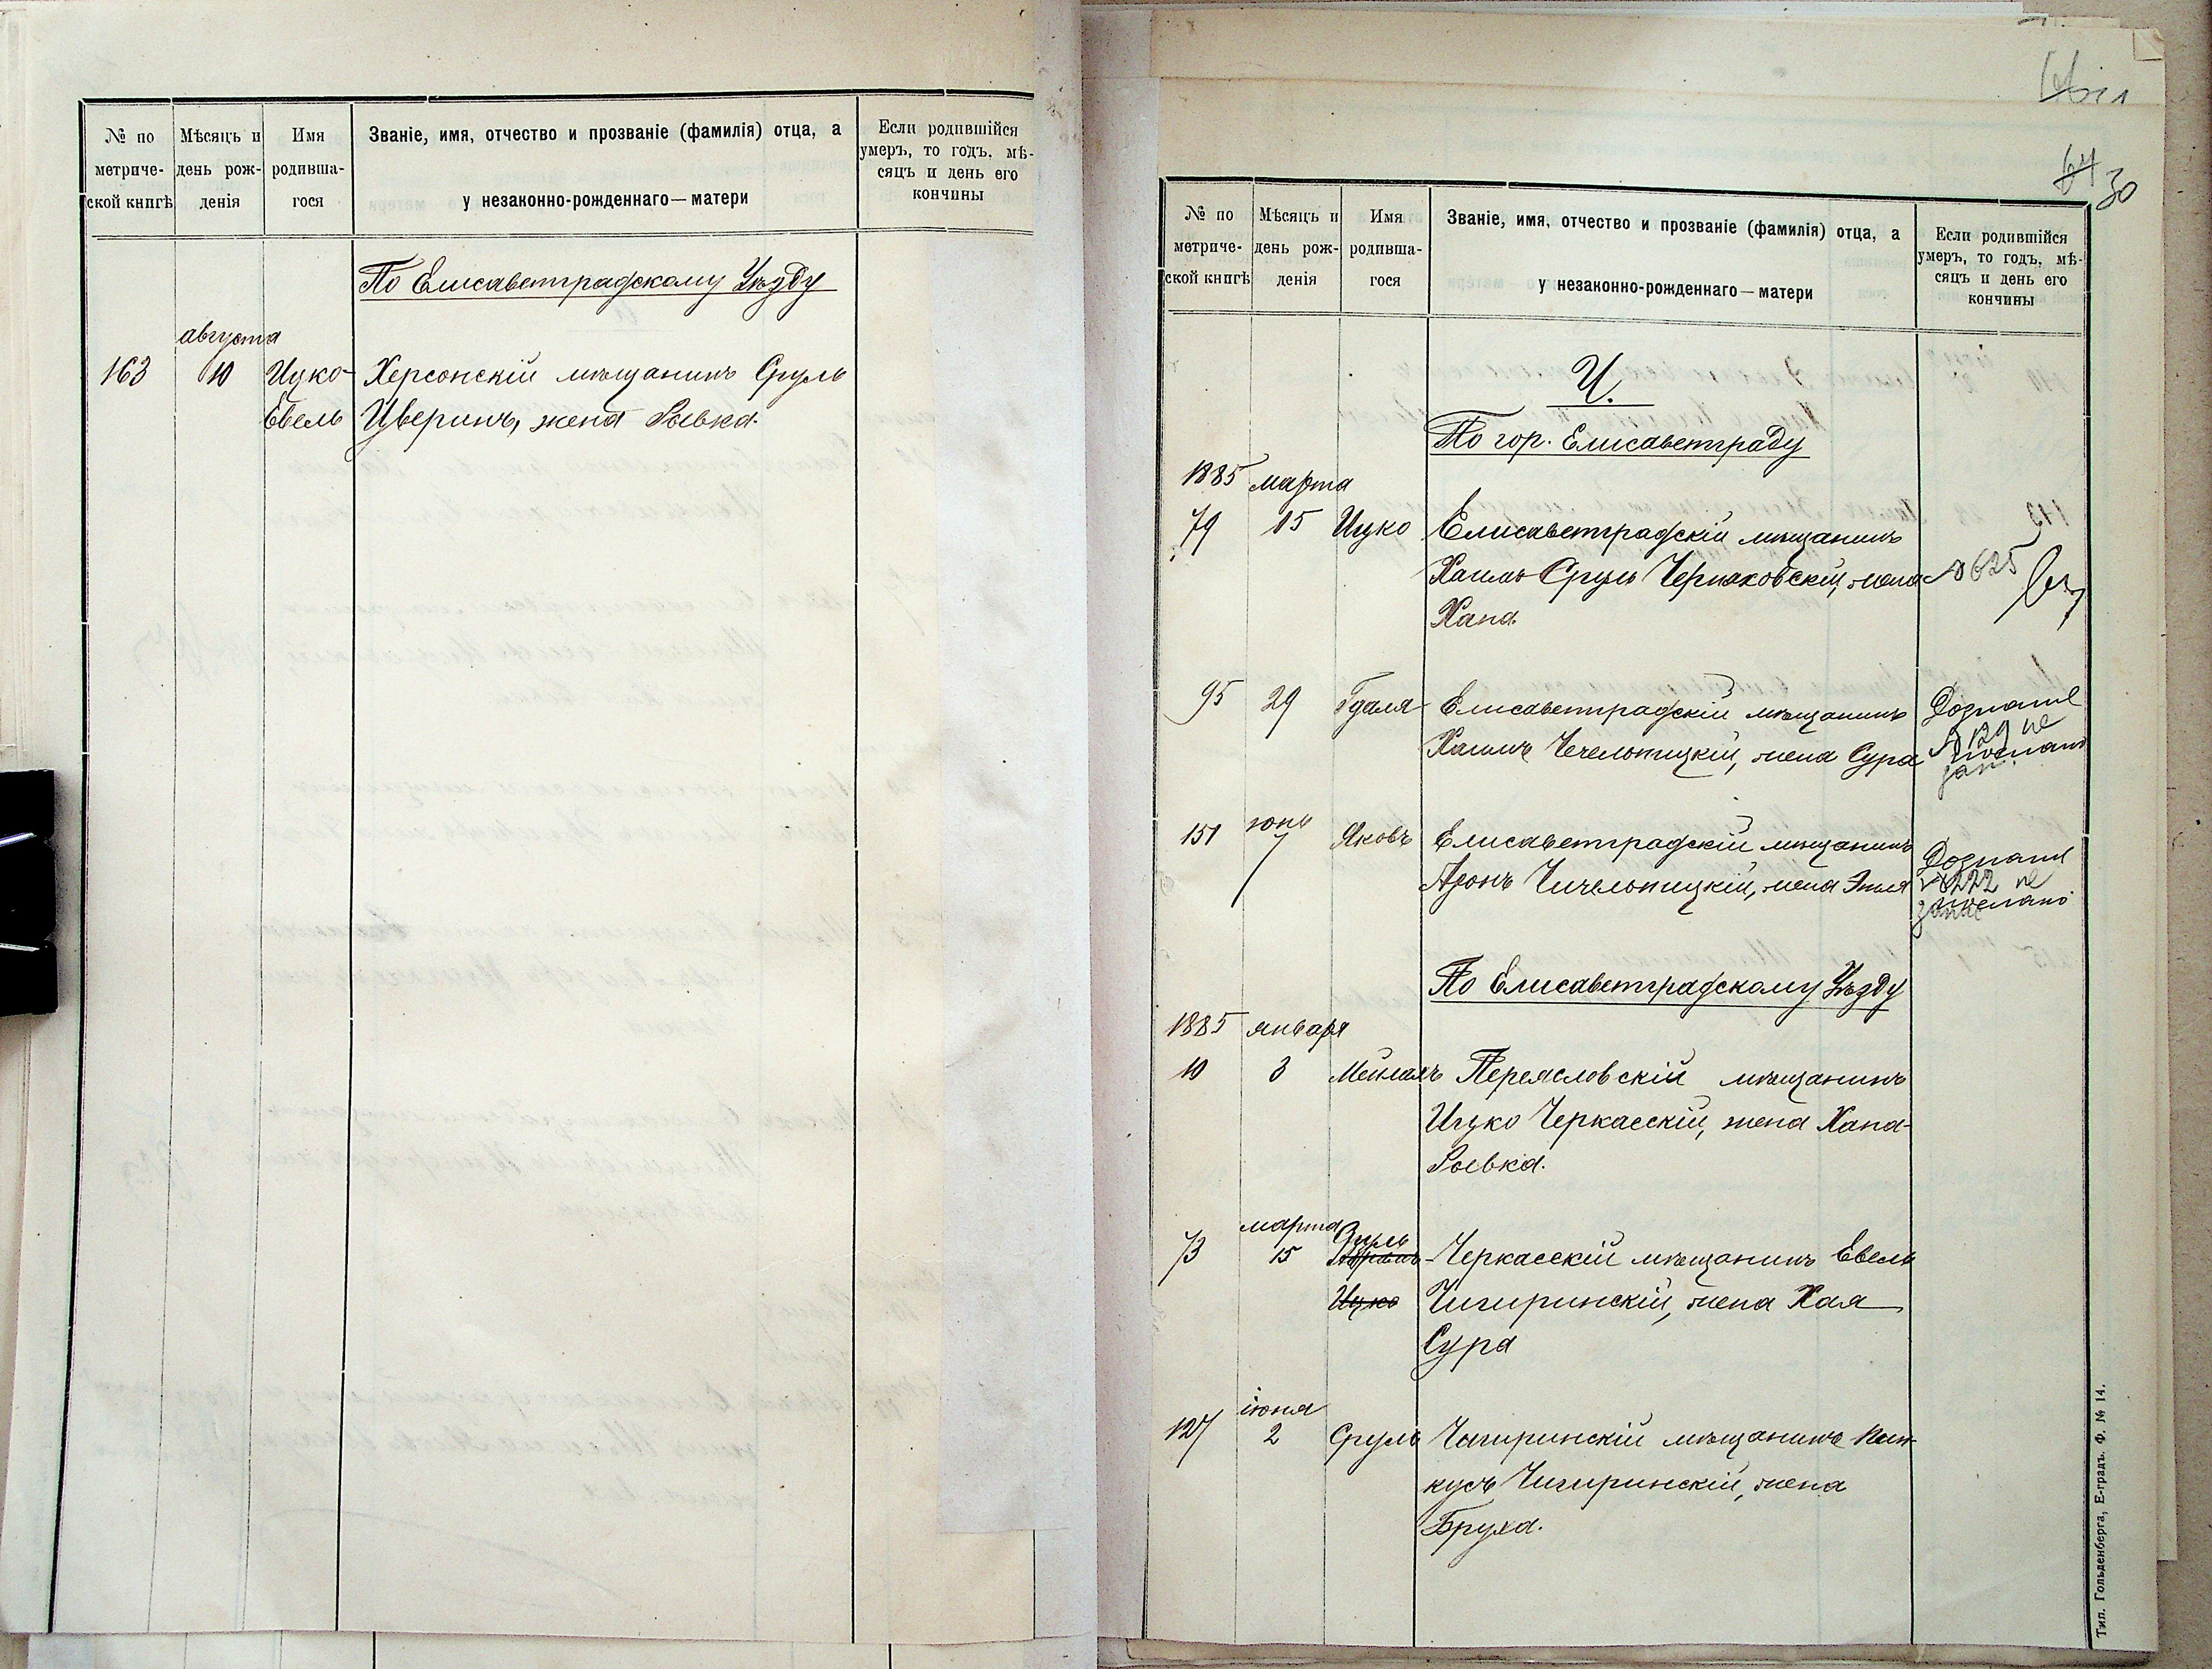 № по метриче-ской книгѣ
Мѣсяцъ и день рож-денія
Имя родивша-гося
Званіе, имя, отчество и прозваніе (фамилія) отца, а у незаконно-рожденнаго — матери
Если родившійся умеръ, то годъ, мѣ-сяцъ и день его кончины
По Елисаветградскому Уѣзду
августа
163 10 Ицко- Херсонскій мѣщанинъ Сруль
Евель Цверинъ, жена Ривка.
64 30
№ по метриче-ской книгѣ
Мѣсяцъ и день рож-денія
Имя родивша-гося
Званіе, имя, отчество и прозваніе (фамилія) отца, а у незаконно-рожденнаго — матери
Если родившійся умеръ, то годъ, мѣ-сяцъ и день его кончины
Ч.
По гор. Елисаветграду
1885 марта
79 15 Ицко Елисаветградскій мѣщанинъ
Хаимъ-Сруль Черняховскій, жена № 625
Хана.
95 29 Гдаля Елисаветградскій мѣщанинъ Дознаніе
Хаимъ Чечельницкій, жена Сура № 129 не
151 7 Яковъ Елисаветградскій мѣщанинъ Дознаніе
Аронъ Чичельницкій, жена Этля № 222 не
По Елисаветградскому Уѣзду
1885 января
10 3 Мейлахъ Переясловскій мѣщанинъ
Ицко Черкасскій, жена Хана-
Ривка.
марта
73 15 Черкасскій мѣщанинъ Евель
Ицко Чигиринскій, жена Хая
Сура
іюня
127 2 Сруль Чигиринскій мѣщанинъ Пин-
кусъ Чигиринскій, жена
Бруха.
Тип. Гольденберга, Е-градъ. Ф. № 14.